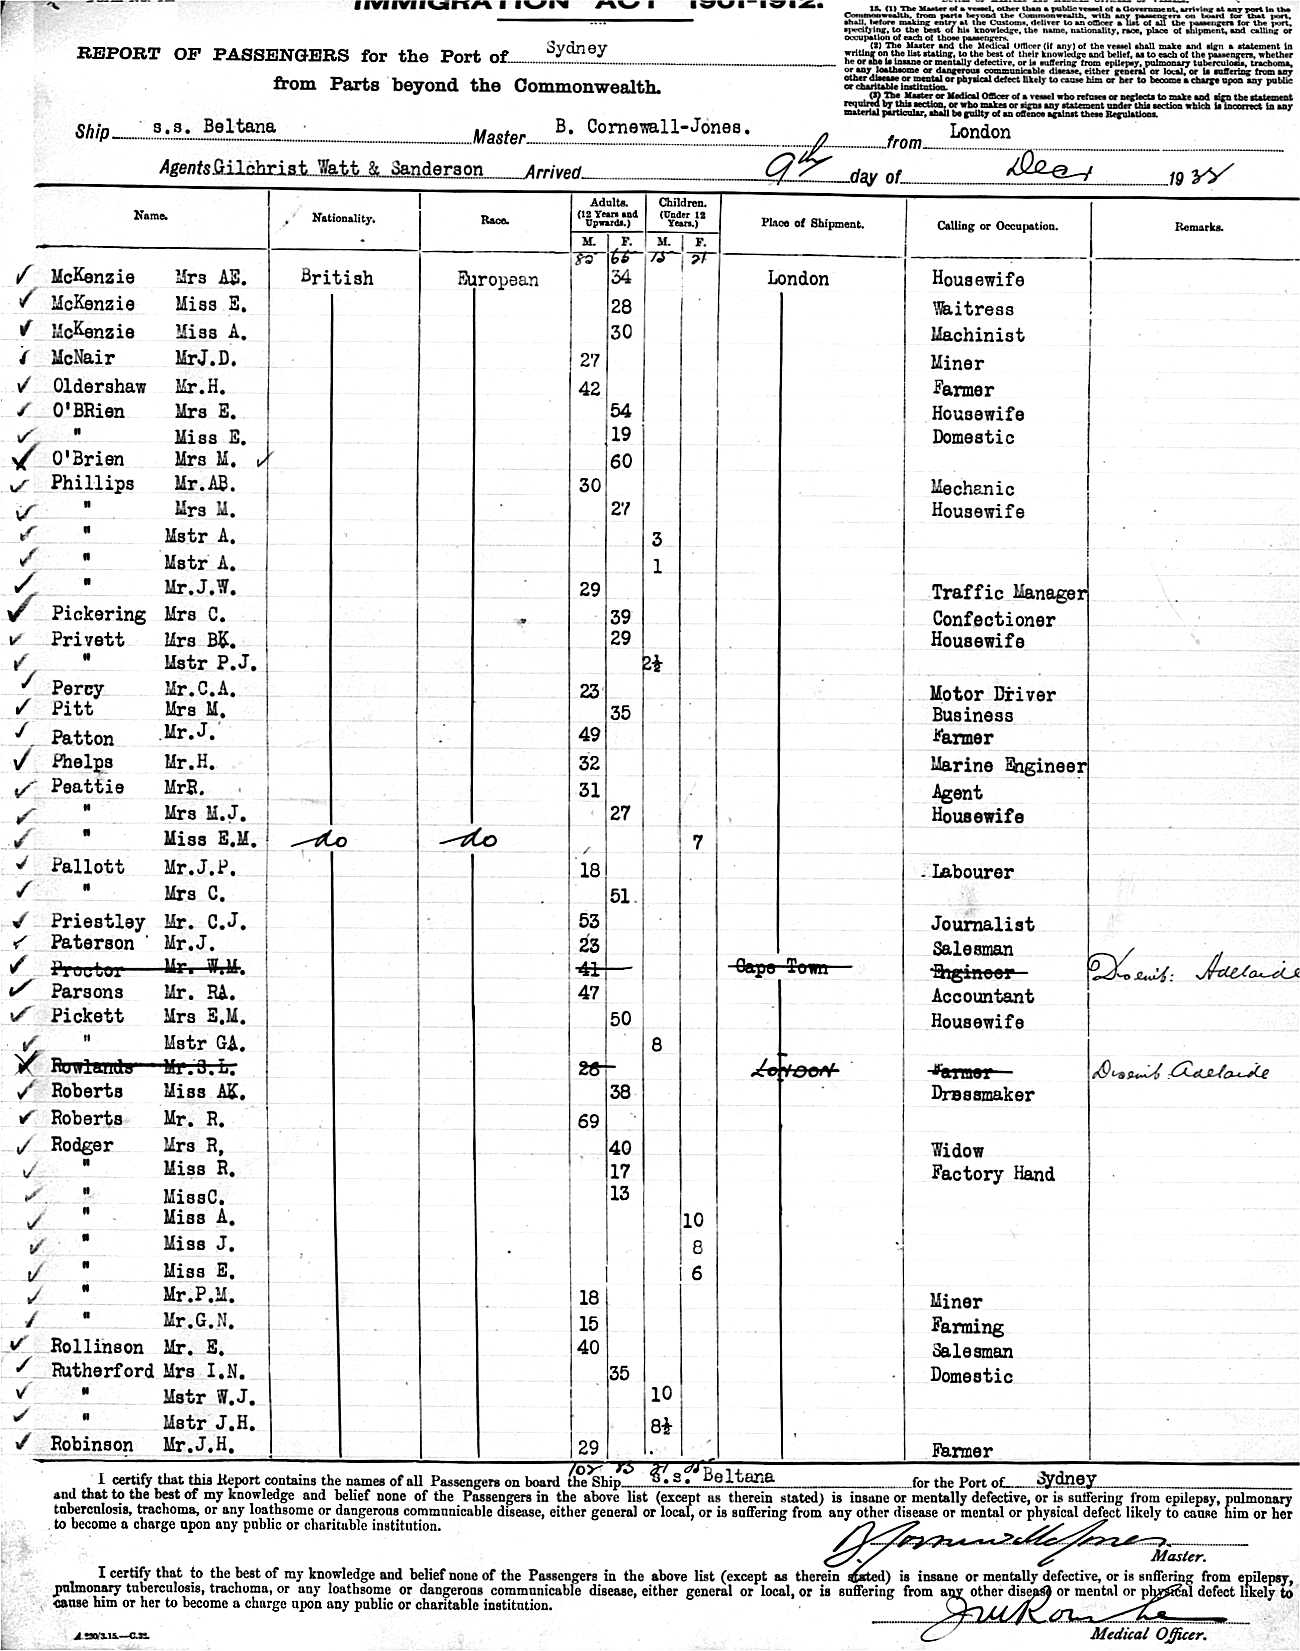 IMMIGRATION ACT 1901-1912.
REPORT OF PASSENGERS for the Port of Sydney
from Parts beyond the Commonwealth.
15. (1) The Master of a vessel, other than a public vessel of a Government, arriving at any port in the
Commonwealth, from parts beyond the Commonwealth, with any passengers on board for that port,
shall, before making entry at the Customs, deliver to an officer a list of all the passengers for the port,
specifying, to the best of his knowledge, the name, nationality, race, place of shipment, and calling or
occupation of each of those passengers.
(2) The Master and the Medical Officer (if any) of the vessel shall make and sign a statement in
writing on the list stating, to the best of their knowledge and belief, as to each of the passengers, whether
he or she is insane or mentally defective, or is suffering from epilepsy, pulmonary tuberculosis, trachoma,
or any loathsome or dangerous communicable disease, either general or local, or is suffering from any
other disease or mental or physical defect likely to cause him or her to become a charge upon any public
or charitable institution.
(3) The Master or Medical Officer of a vessel who refuses or neglects to make and sign the statement
required by this section, or who makes or signs any statement under this section which is incorrect in any
material particular, shall be guilty of an offence against these Regulations.
Ship s.s. Beltana Master B. Cornewall-Jones. from London
Agents Gilchrist Watt & Sanderson Arrived 9th day of Decr 19
Name. Nationality. Race. Adults. (12 Years and Upwards.) Children. (Under 12 Years.) Place of Shipment. Calling or Occupation. Remarks.
M. F. M. F.
66 15 21
McKenzie Mrs AE. British European 34 London Housewife
McKenzie Miss E. 28 Waitress
McKenzie Miss A. 30 Machinist
McNair MrJ.D. 27 Miner
Oldershaw Mr.H. 42 Farmer
O'BRien Mrs E. 54 Housewife
" Miss E. 19 Domestic
O'Brien Mrs M. 60
Phillips Mr.AB. 30 Mechanic
" Mrs M. 27 Housewife
" Mstr A. 3
" Mstr A. 1
" Mr.J.W. 29 Traffic Manager
Pickering Mrs C. 39 Confectioner
Privett Mrs BK. 29 Housewife
" Mstr P.J. 2½
Percy Mr.C.A. 23 Motor Driver
Pitt Mrs M. 35 Business
Patton Mr.J. 49 Farmer
Phelps Mr.H. 32 Marine Engineer
Peattie MrR. 31 Agent
" Mrs M.J. 27 Housewife
" Miss E.M. do do 7
Pallott Mr.J.P. 18 Labourer
" Mrs C. 51
Priestley Mr. C.J. 53 Journalist
Paterson Mr.J. 23 Salesman
Proctor Mr. W.M. 41 Cape Town Engineer Disemb: Adelaide
Parsons Mr. RA. 47 Accountant
Pickett Mrs E.M. 50 Housewife
" Mstr GA. 8
Rowlands Mr.S.L. 26 London Farmer Disemb Adelaide
Roberts Miss AK. 38 Dressmaker
Roberts Mr. R. 69
Rodger Mrs R, 40 Widow
" Miss R. 17 Factory Hand
" MissC. 13
" Miss A. 10
" Miss J. 8
" Miss E. 6
" Mr.P.M. 18 Miner
" Mr.G.N. 15 Farming
Rollinson Mr. E. 40 Salesman
Rutherford Mrs I.N. 35 Domestic
" Mstr W.J. 10
" Mstr J.H. 8½
Robinson Mr.J.H. 29 Farmer
I certify that this Report contains the names of all Passengers on board the Ship S.s. Beltana for the Port of Sydney
and that to the best of my knowledge and belief none of the Passengers in the above list (except as therein stated) is insane or mentally defective, or is suffering from epilepsy, pulmonary
tuberculosis, trachoma, or any loathsome or dangerous communicable disease, either general or local, or is suffering from any other disease or mental or physical defect likely to cause him or her
to become a charge upon any public or charitable institution.
B Cornewall Jones
Master.
I certify that to the best of my knowledge and belief none of the Passengers in the above list (except as therein stated) is insane or mentally defective, or is suffering from epilepsy,
pulmonary tuberculosis, trachoma, or any loathsome or dangerous communicable disease, either general or local, or is suffering from any other disease or mental or physical defect likely to
cause him or her to become a charge upon any public or charitable institution.
Medical Officer.